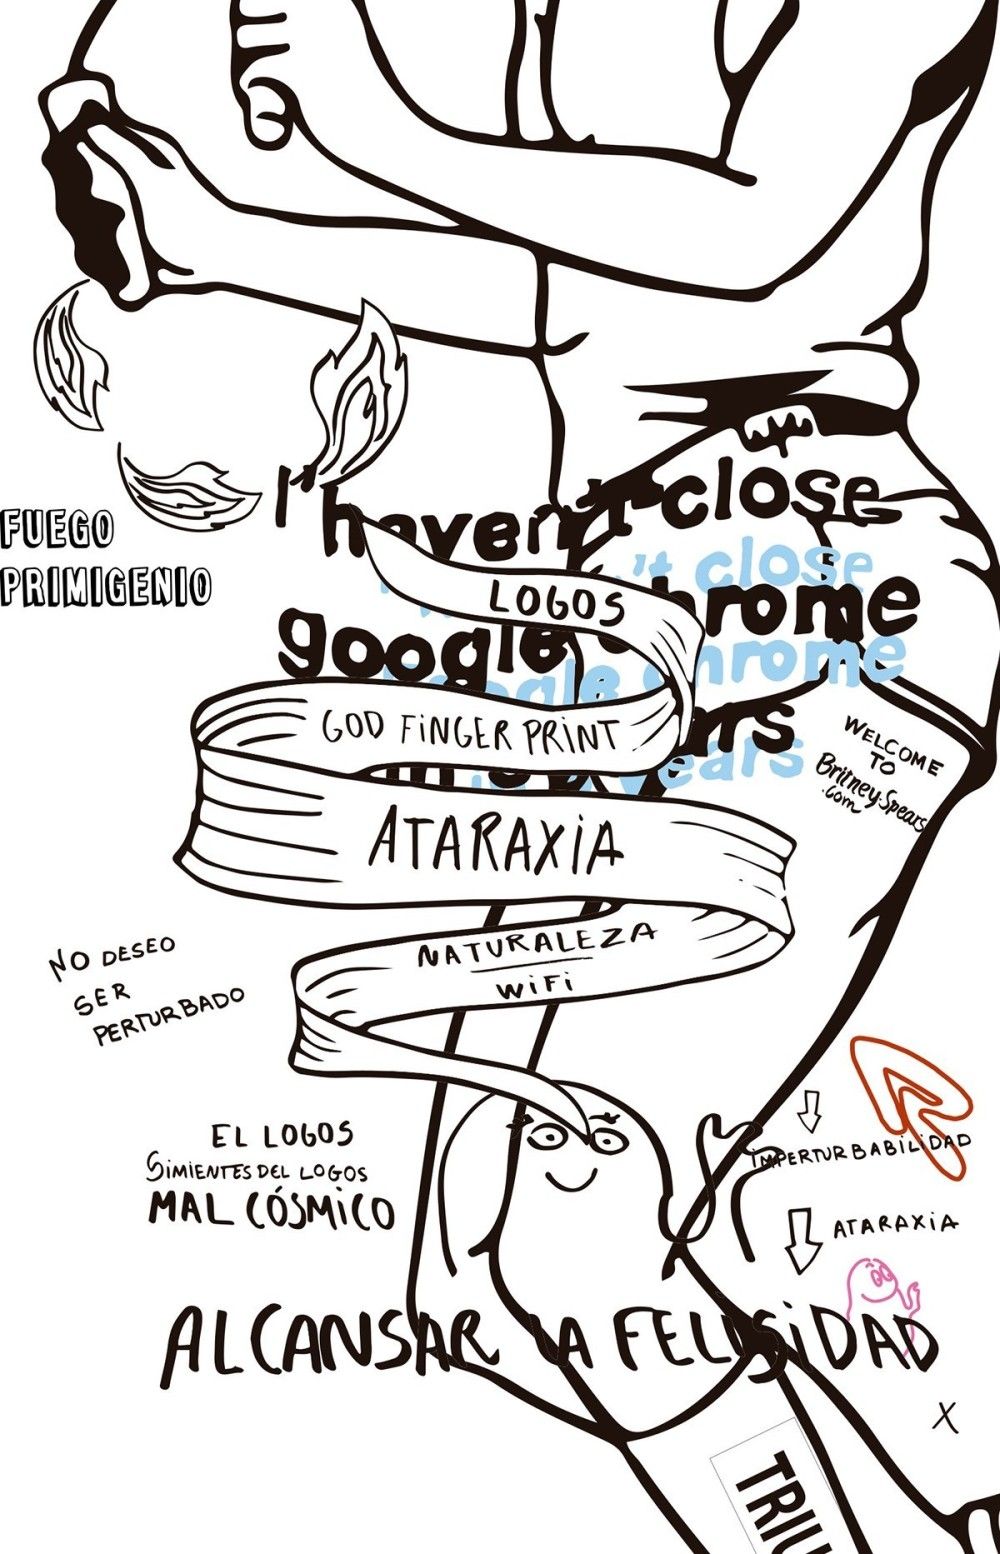 I haven't close
google chrome
FUEGO
PRIMIGENIO
LOGOS
GOD FiNGER PRiNT
ATARAXiA
NATURALEZA
WiFi
WELCOME
TO
Britney-Spears
.com
NO DESEO
SER
PERTURBADO
EL LOGOS
SIMIENTES DEL LOGOS
MAL CÓSMiCO
iMPERTURBABiLiDAD
ATARAXiA
ALCANSAR LA FELISiDAD
X
TRIU